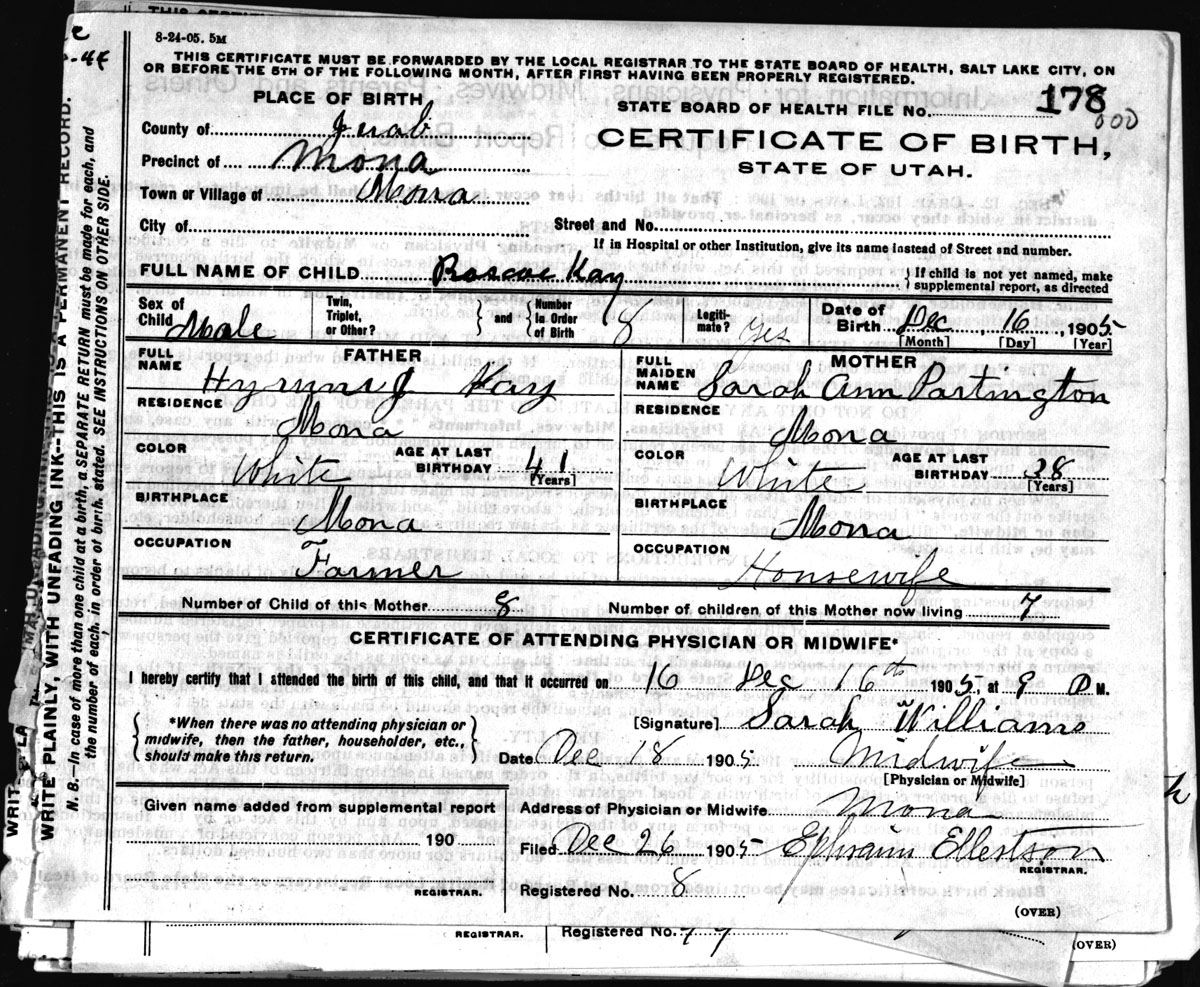 8-24-05. 5M
THIS CERTIFICATE MUST BE FORWARDED BY THE LOCAL REGISTRAR TO THE STATE BOARD OF HEALTH, SALT LAKE CITY, ON
OR BEFORE THE 5TH OF THE FOLLOWING MONTH, AFTER FIRST HAVING BEEN PROPERLY REGISTERED.
PLACE OF BIRTH
STATE BOARD OF HEALTH FILE No. 178
000
County of Juab
CERTIFICATE OF BIRTH,
STATE OF UTAH.
Precinct of Mona
Town or Village of Mona
City of Street and No.
If in Hospital or other Institution, give its name instead of Street and number.
FULL NAME OF CHILD Roscoe Kay
If child is not yet named, make
supplemental report, as directed
Sex of Child Male
Twin, Triplet, or Other?
and
Number in Order of Birth 8
Legiti-mate? Yes
Date of Birth Dec 16 1905
[Month] [Day] [Year]
FATHER
FULL NAME Kay
RESIDENCE
Mona
COLOR White
AGE AT LAST BIRTHDAY 41
[Years]
BIRTHPLACE
Mona
OCCUPATION
Farmer
MOTHER
FULL MAIDEN NAME Sarah Ann Partington
RESIDENCE
Mona
COLOR White
AGE AT LAST BIRTHDAY 38
[Years]
BIRTHPLACE
Mona
OCCUPATION
Housewife
Number of Child of this Mother 8 Number of children, of this Mother now living 7
CERTIFICATE OF ATTENDING PHYSICIAN OR MIDWIFE*
I hereby certify that I attended the birth of this child, and that it occurred on 16 Dec 16th 1905, at 9 M.
*When there was no attending physician or
midwife, then the father, householder, etc.,
should make this return.
[Signature] Sarah Williams
Date Dec 18 1905. Midwife
[Physician or Midwife]
Given name added from supplemental report
190
REGISTRAR.
Address of Physician or Midwife Mona
Filed Dec 26 1905 Ephraim Ellertson
REGISTRAR.
Registered No. 8
(OVER)
REGISTRAR.
Registered No.
(OVER)
WRITE PLAINLY, WITH UNFADING INK--THIS IS A PERMANENT RECORD.
N. B.—In case of more than one child at a birth, a SEPARATE RETURN must be made for each, and
the number of each, in order of birth, stated. SEE INSTRUCTIONS ON OTHER SIDE.